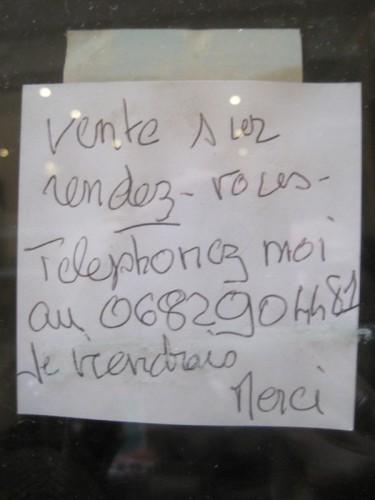 vente sur
rendez-vous-
Telephonez moi
au 0682904481
Je viendrais
Merci